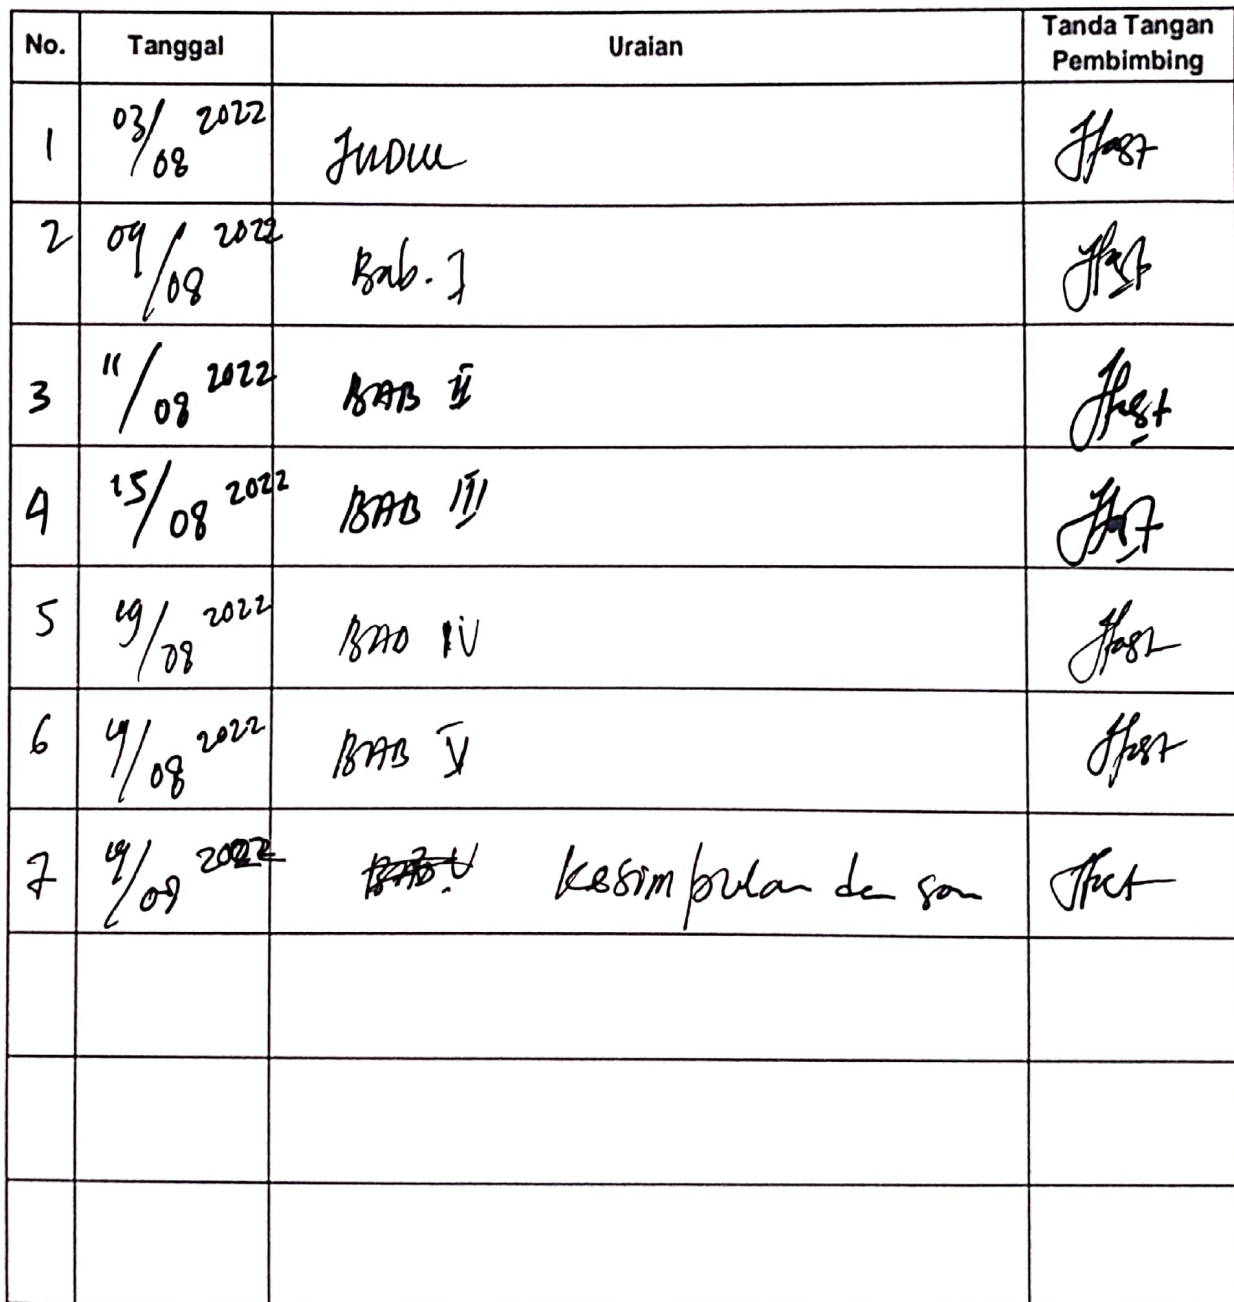 No. Tanggal Uraian Tanda Tangan Pembimbing
1 03/08 2022 JUDUL
2 09/08 2022 Bab. I
3 11/08 2022 BAB II
4 15/08 2022 BAB III
5 19/08 2022 BAB IV
6 08 2022 BAB V
7 2022 Kesimpulan dan